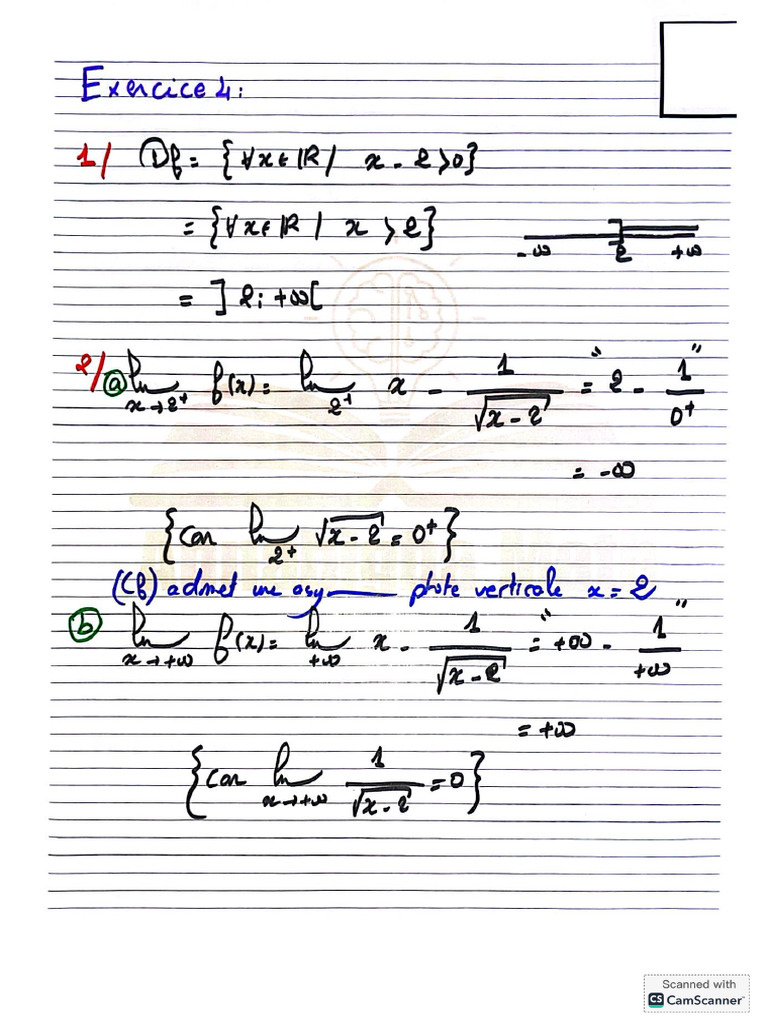 Exercice 4:
1/ Df = {∀x∈ℝ / x - 2 > 0}
= {∀x∈ℝ / x > 2}
-∞ 2 +∞
= ]2; +∞[
2/ a lim x→2⁺ f(x) = lim 2⁺ x - 1/√(x-2) = "2 - 1/0⁺"
= -∞
{car lim 2⁺ √(x-2) = 0⁺}
(Cf) admet une asy——ptote verticale x = 2
b lim x→+∞ f(x) = lim +∞ x - 1/√(x-2) = "+∞ - 1/+∞"
= +∞
{car lim x→+∞ 1/√(x-2) = 0}
Scanned with
CS CamScanner